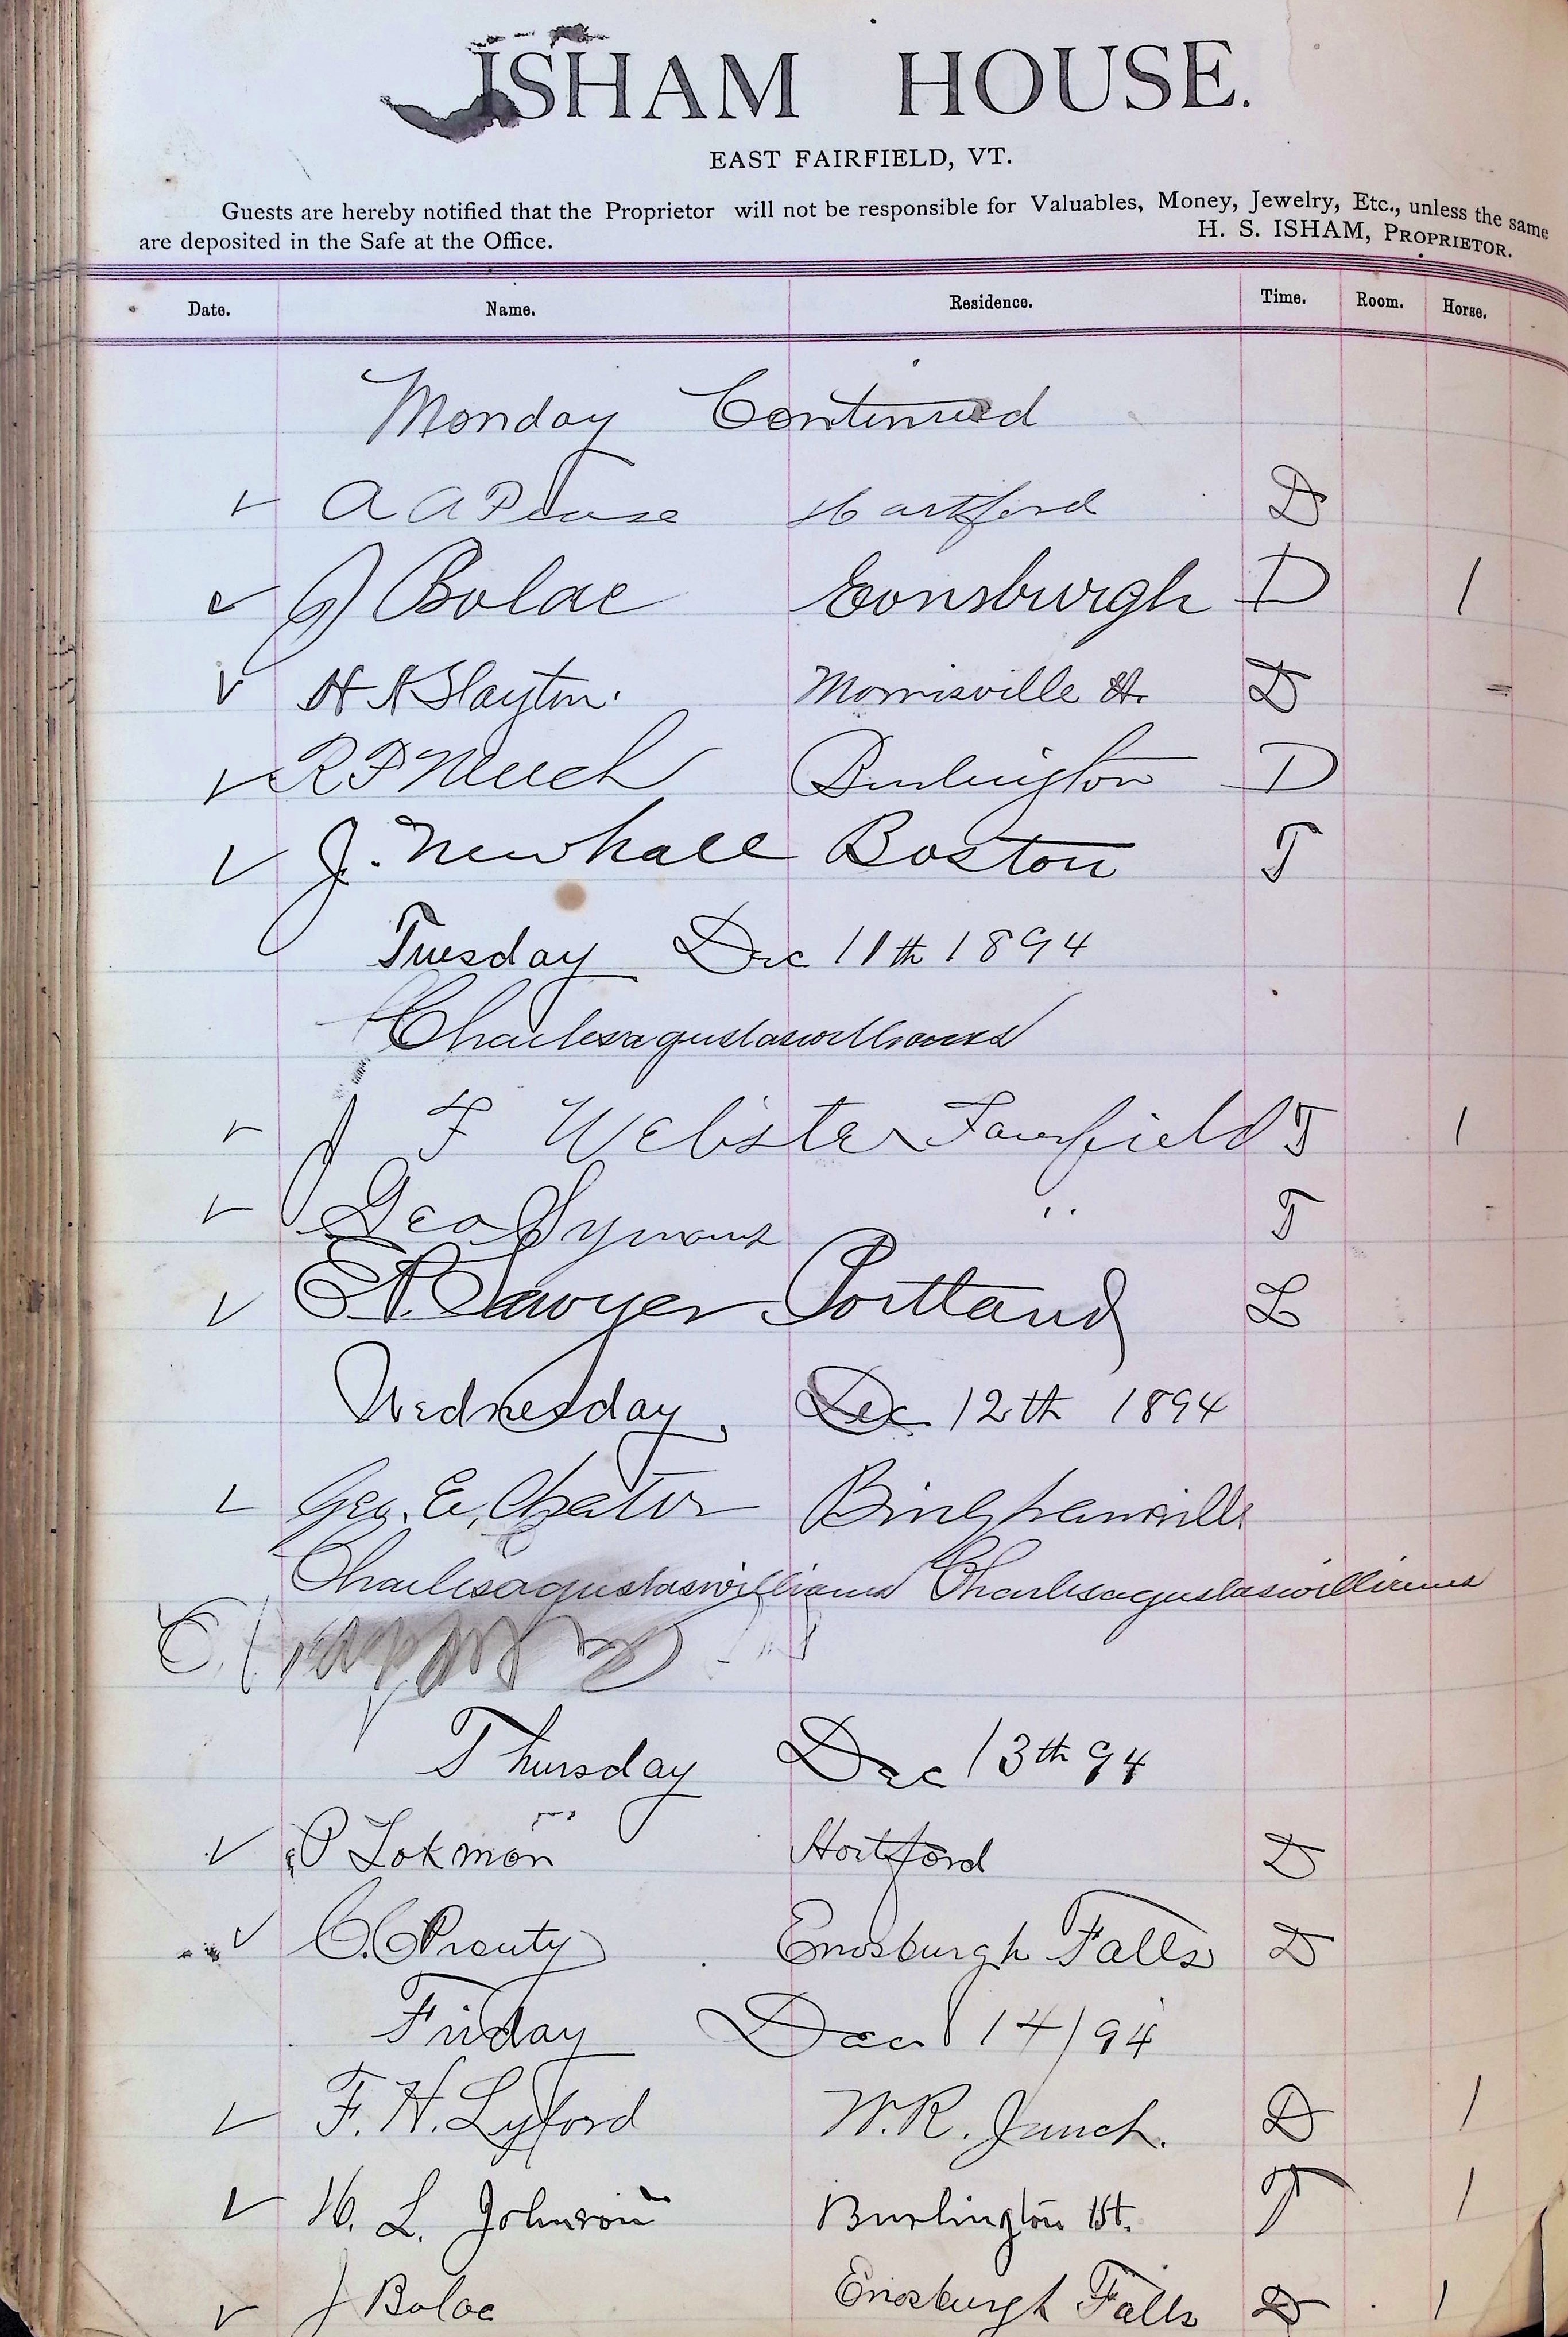 ISHAM HOUSE.
EAST FAIRFIELD, VT.
Guests are hereby notified that the Proprietor will not be responsible for Valuables, Money, Jewelry, Etc., unless the same
are deposited in the Safe at the Office. H. S. ISHAM, PROPRIETOR.
Date. Name. Residence. Time. Room. Horse.
Monday Continued
✓ A A Pease Hartford D
✓ J Bolac Eonsburgh D 1
✓ H A Slayton. Morrisville Vt. D
✓ R F Meech Burlington D
✓ J. Newhall Boston T
Tuesday Dec 11th 1894
Charlesagustaswilliams
✓ J F Webster Fairfield T 1
✓ Geo Symons " T
✓ E P. Sawyer Portland L
Wednesday Dec 12th 1894
✓ Geo. E. Chator Binghamville
Charlesagustaswilliams Charlesagustaswilliams
Thursday Dec 13th 94
✓ P Lokmon Hortford D
✓ C. C Prouty Enosburgh Falls D
Friday Dec 14/94
✓ F. H. Lyford W. R. Junch. D 1
✓ H. L. Johnson Burlington Vt. T 1
✓ J Bolac Enosburgh Falls D 1